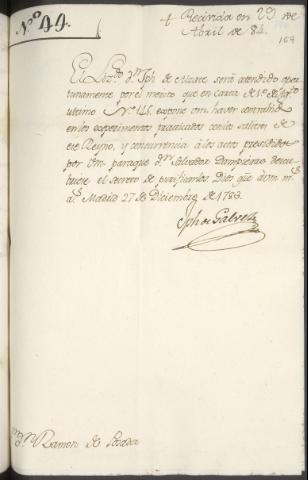 N.º 44.
+ Recivida en 29 de
Abril de 84.
El Liz.do D.n Jph de será atendido opor-
tunamente por el merito que en Carta de 1.º de
ultimo N.º expone Vm. haver contrahido
en los experimentos practicados con los salitres de
ese Reyno, y concurrencia á los actos presididos
por Vm. para que D.n Salvador Dampierre descu-
briese el secreto de purificarlos. Dios gue. á Vm. m.s
a.s Madrid 27 de Diciembre de 1783.
Jph de Galvez
D.n Ramon de Posada